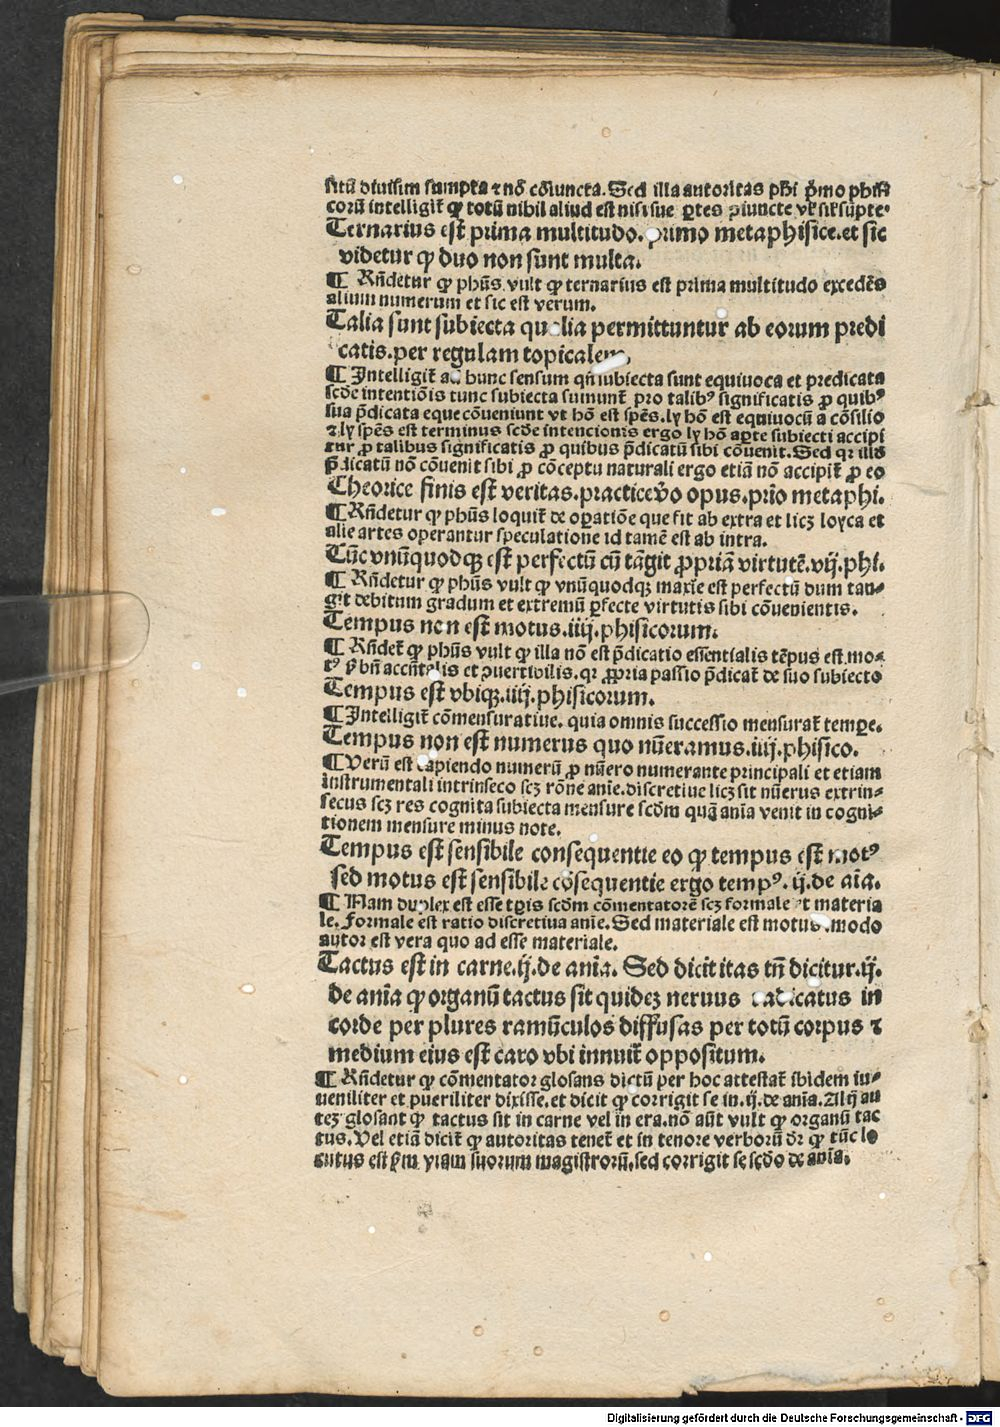 sitū diuisim sumpta ⁊ nō cōiuncta. Sed illa autoritas phi p̄mo phisi
corū intelligit̄ ꝙ totū nihil aliud est nisi sue ꝑtes ꝯiuncte vĺ siĺ sūpte.
Ternarius est prima multitudo. primo metaphisice. et sic
videtur ꝙ duo non sunt multa.
¶ Rn̄detur ꝙ phūs vult ꝙ ternarius est prima multitudo excedēs
alium numerum et sic est verum.
Talia sunt subiecta qualia permittuntur ab eorum predi
catis. per regulam topicalem.
¶ Intelligit̄ ad hunc sensum qn̄ subiecta sunt equiuoca et predicata
scd̄e intentiōis tunc subiecta sumunt̄ pro talibꝰ significatis ꝓ quibꝰ
sua p̄dicata eque cōueniunt vt hō est spēs. ly hō est equiuocū a cōsilio
⁊ ly spēs est terminus scd̄e intencionis ergo ly hō aꝑte subiecti accipi
tur ꝓ talibus significatis ꝓ quibus p̄dicatū sibi cōuenit. Sed qr illd
p̄dicatū nō cōuenit sibi ꝓ cōceptu naturali ergo etiā nō accipit̄ ꝓ eo
Theorice finis est veritas. practice v̄o opus. prio metaphi.
¶ Rn̄detur ꝙ phūs loquit̄ de oꝑatiōe que fit ab extra et licꝫ loyca et
alie artes operantur speculatione id tamē est ab intra.
Tūc vnūquodqꝫ est perfectū cū tāgit ꝓpriā virtutē. vij. phi.
¶ Rn̄detur ꝙ phūs vult ꝙ vnūquodqꝫ maxīe est perfectū dum tan⸗
git debitum gradum et extremū ꝑfecte virtutis sibi cōuenientis.
Tempus non est motus. iiij. phisicorum.
¶ Rn̄det̄ ꝙ phūs vult ꝙ illa nō est p̄dicatio essentialis tēpus est mo⸗
tꝰ ꝑ bn̄ accn̄talis et ꝯuertibilis. qr ꝓpria passio p̄dicat̄ de suo subiecto
Tempus est vbiqꝫ. iiij. phisicorum.
¶ Intelligit̄ cōmensuratiue. quia omnis successio mensurat̄ temꝑe.
Tempus non est numerus quo nūeramus. iiij. phisico.
¶ Verū est capiendo numerū ꝓ nūero numerante principali et etiam
instrumentali intrinseco scꝫ rōne anīe. discretiue licꝫ sit nūerus extrin⸗
secus scꝫ res cognita subiecta mensure scd̄m quā anīa venit in cogni⸗
tionem mensure minus note.
Tempus est sensibile consequentie eo ꝙ tempus est motꝰ
sed motus est sensibile cōsequentie ergo tempꝰ. ij. de aīa.
¶ Nam duplex est esse tꝑis scd̄m cōmentatorē scꝫ formale et materia
le. Formale est ratio discretiua anīe. Sed materiale est motus. modo
autor est vera quo ad esse materiale.
Tactus est in carne. ij. de anīa. Sed dicit itas tn̄ dicitur. ij.
de anīa ꝙ organū tactus sit quideꝫ neruus radicatus in
corde per plures ramūculos diffusas per totū corpus ⁊
medium eius est caro vbi innuit̄ oppositum.
¶ Rn̄detur ꝙ cōmentator glosans dictū per hoc attestat̄ ibidem iu⸗
ueniliter et pueriliter dixisse. et dicit ꝙ corrigit se in. ij. de anīa. Alij au
teꝫ glosant ꝙ tactus sit in carne vel in era. nō aūt vult ꝙ organū tac
tus. Vel etiā dicit̄ ꝙ autoritas tenet̄ et in tenore verborū dr̄ ꝙ tūc lo
cutus est ẜm viam suorum magistrorū. sed corrigit se scd̄o de anīa.
Digitalisierung gefördert durch die Deutsche Forschungsgemeinschaft - DFG